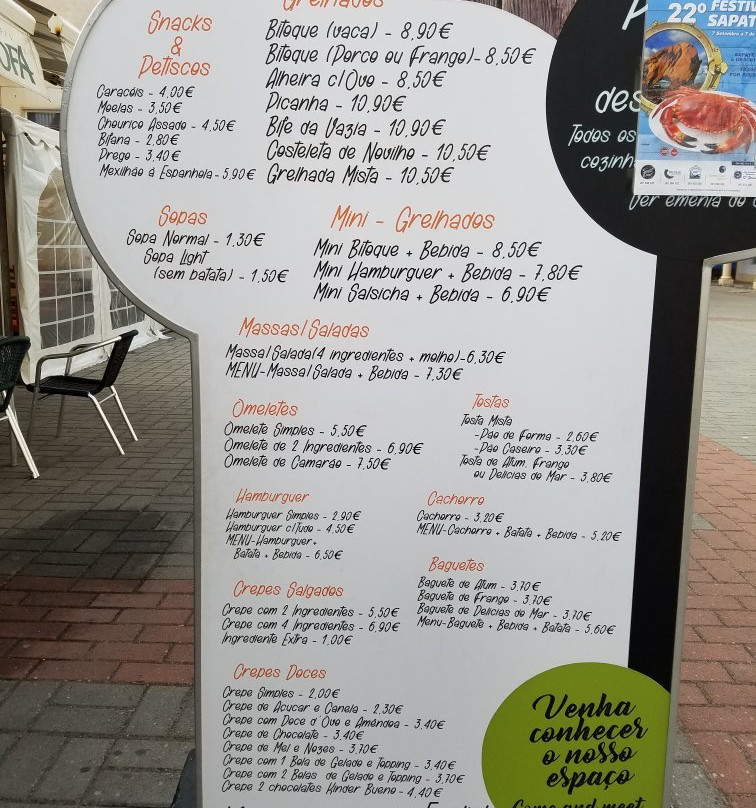 Grelhados
Bitoque (vaca) - 8,90€
Bitoque (Porco ou Frango) - 8,50€
Alheira c/Ovo - 8,50€
Picanha - 10,90€
Bife da Vazia - 10,90€
Costeleta de Novilho - 10,50€
Grelhada Mista - 10,50€
Snacks
&
Petiscos
Caracóis - 4,00€
Moelas - 3,50€
Chouriço Assado - 4,50€
Bifana - 2,80€
Prego - 3,40€
Mexilhão á Espanhola - 5,90€
Sopas
Sopa Normal - 1,30€
Sopa Light
(sem batata) - 1,50€
Mini - Grelhados
Mini Bitoque + Bebida - 8,50€
Mini Hamburguer + Bebida - 7,80€
Mini Salsicha + Bebida - 6,90€
Massas/Saladas
Massa/Salada(4 ingredientes + molho)-6,30€
MENU-Massa/Salada + Bebida - 7,30€
Omeletes
Omelete Simples - 5,50€
Omelete de 2 Ingredientes - 6,90€
Omelete de Camarão - 7,50€
Tostas
Tosta Mista
-Pão de Forma - 2,60€
-Pão Caseiro - 3,30€
Tosta de Atum, Frango
ou Delicias do Mar - 3,80€
Hamburguer
Hamburguer Simples - 2,90€
Hamburguer c/tudo - 4,50€
MENU-Hamburguer+
Batata + Bebida - 6,50€
Cachorro
Cachorro - 3,20€
MENU-Cachorro + Batata + Bebida - 5,20€
Baguetes
Baguete de Atum - 3,70€
Baguete de Frango - 3,70€
Baguete de Delicias do Mar - 3,70€
Menu-Baguete + Bebida + Batata - 5,60€
Crepes Salgados
Crepe com 2 Ingredientes - 5,50€
Crepe com 4 Ingredientes - 6,90€
Ingrediente Extra - 1,00€
Crepes Doces
Crepe Simples - 2,00€
Crepe de Açucar e Canela - 2,30€
Crepe com Doce d'Ovo e Amêndoa - 3,40€
Crepe de Chocolate - 3,40€
Crepe de Mel e Nozes - 3,70€
Crepe com 1 Bola de Gelado e Topping - 3,40€
Crepe com 2 Bolas de Gelado e Topping - 3,70€
Crepe 2 chocolates Kinder Bueno - 4,40€
Venha
conhecer
o nosso
espaço
Come and meet
des
Todos os
cozinh
Ver ementa do
22º FESTIV
SAPAT
OFA